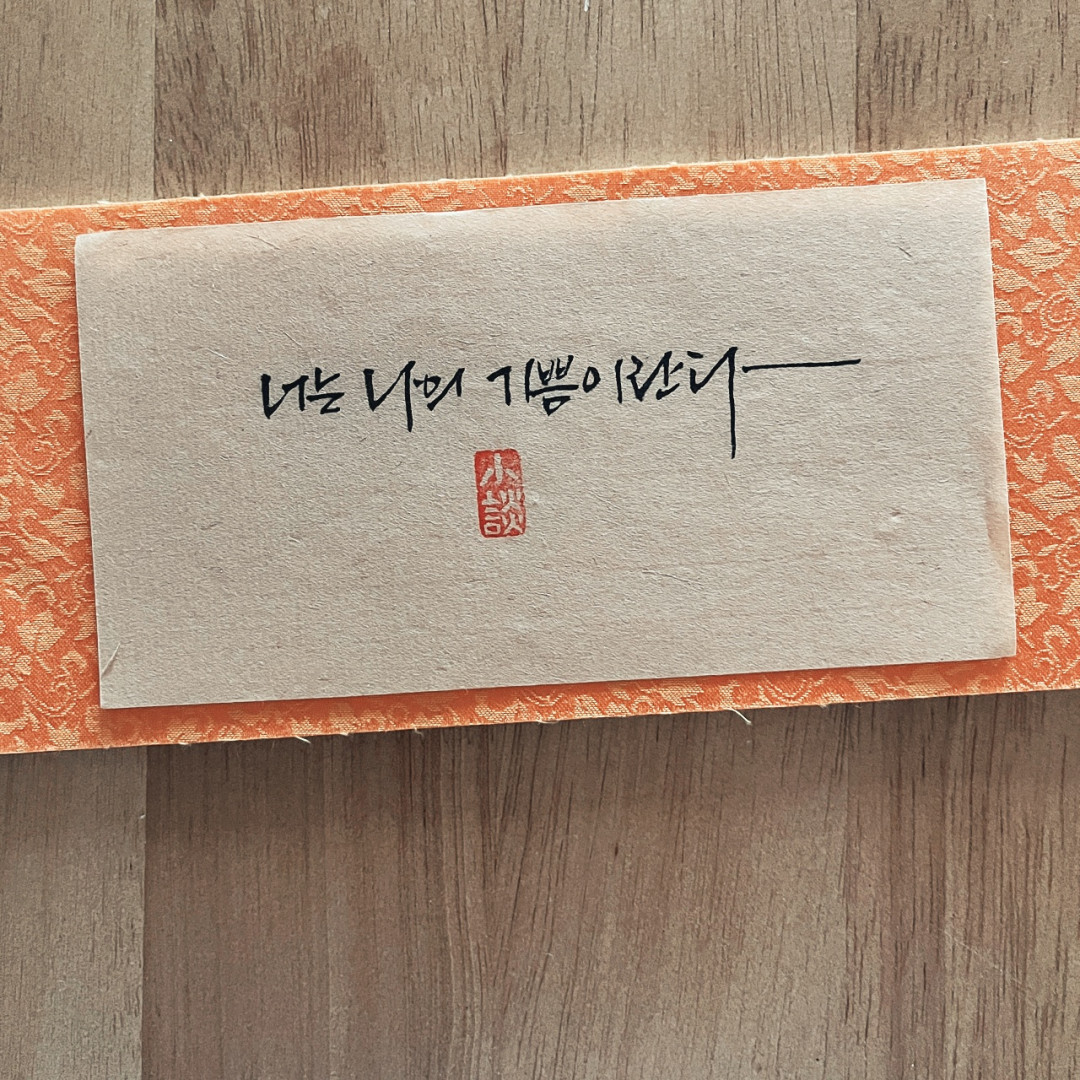 너는 나의 기쁨이란다
小談